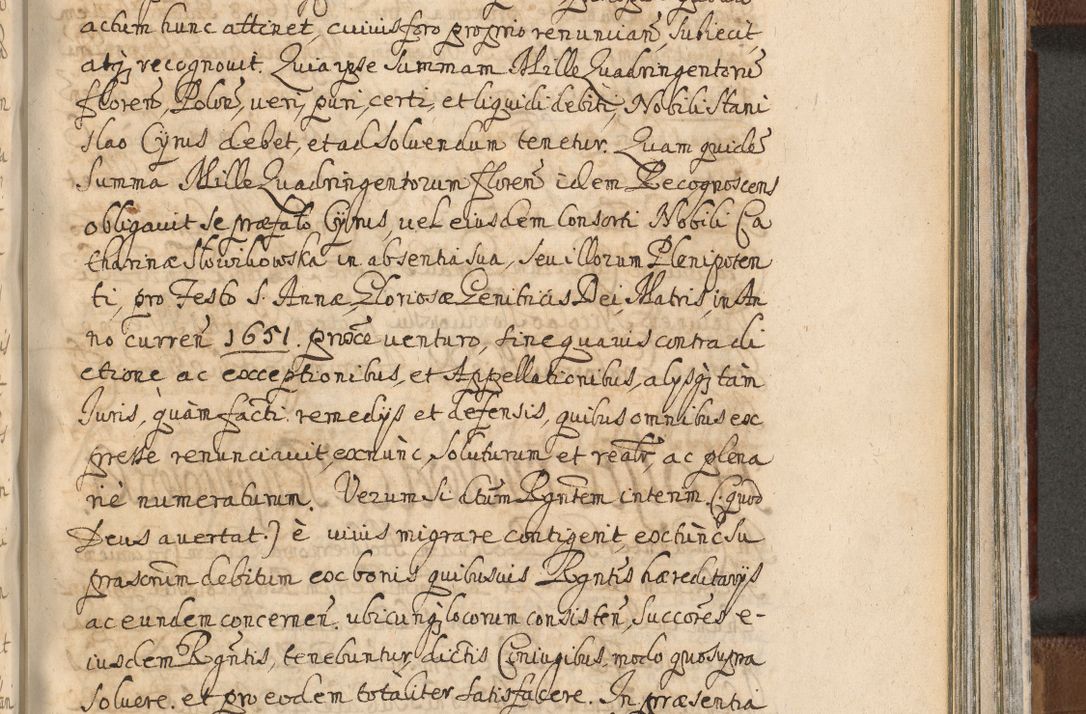 actum hunc attinet, cuiuis foro proprio renuncian̄, subiecit,
atq; recognouit. Quia ipse Summam Mille Quadringentorū
floren̄ Polon̄, veri, puri, certi, et liquidi debiti, Nobili Stani
slao Cyrus debet, et ad soluendum tenetur. Quam quidē
Summa Mille Quadringentorum floren̄ idem Recognoscens
obligauit se præfato Cyrus, vel eiusdem Consorti Nobili Ca
tharinæ Słowikowska in absentia sua, seu illorum Plenipoten
ti, pro Festo S. Annæ, Gloriosæ Genitricis Dei, Matris, in An
no curren̄ 1651. proxe venturo, sine quauis contradi
ctione ac exceptionibus, et Appellationibus, alysq; tàm
Iuris, quàm facti remedijs et defensis, quibus omnibus ex
presse renunciauit, exnùnc, soluturum et realr̄ ac plena
riè numeraturum. Verum si dtum Rgntem interim (: quod
Deus auertat :) è viuis migrare contigerit, extùnc su
prascrum debitum ex bonis quibusuis Rgntis hæreditarijs
ac eundem concernen̄ vbicunq; locorum consisten̄, succores e-
iusdem Rgntis, tenebuntur, dictis Coniugibus, modo quo supra
soluere. et pro eodem totaliter satisfacere. In præsentia